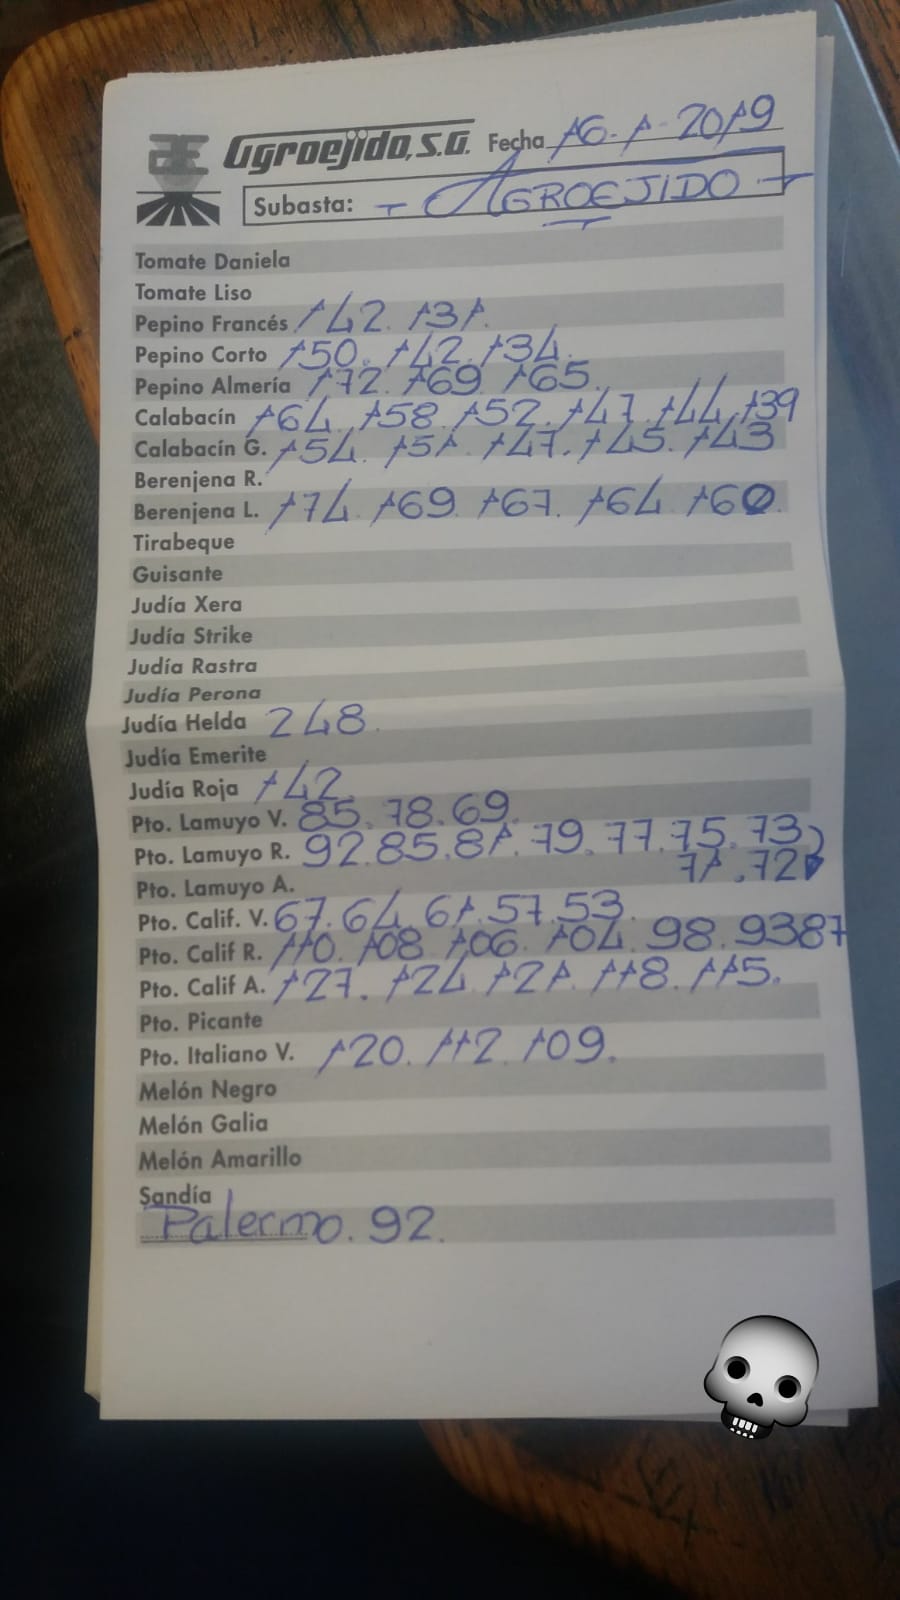 Agroejido, S.A. Fecha 16-1-2019
Subasta: - AGROEJIDO -
Tomate Daniela
Tomate Liso
Pepino Francés 142. 131.
Pepino Corto 150. 142. 134.
Pepino Almería 172. 169. 165.
Calabacín 164. 158. 152. 147. 144. 139
Calabacín G. 154. 151. 147. 145. 143
Berenjena R.
Berenjena L. 174. 169. 167. 164. 160.
Tirabeque
Guisante
Judía Xera
Judía Strike
Judía Rastra
Judía Perona
Judía Helda 248.
Judía Emerite
Judía Roja 142.
Pto. Lamuyo V. 85. 78. 69.
Pto. Lamuyo R. 92. 85. 81. 79. 77. 75. 73
71. 72
Pto. Lamuyo A.
Pto. Calif. V. 67. 64. 61. 57. 53.
Pto. Calif R. 110. 108. 106. 104. 98. 93 87
Pto. Calif A. 127. 124. 121. 118. 115.
Pto. Picante
Pto. Italiano V. 120. 112. 109.
Melón Negro
Melón Galia
Melón Amarillo
Sandía
Palermo. 92.